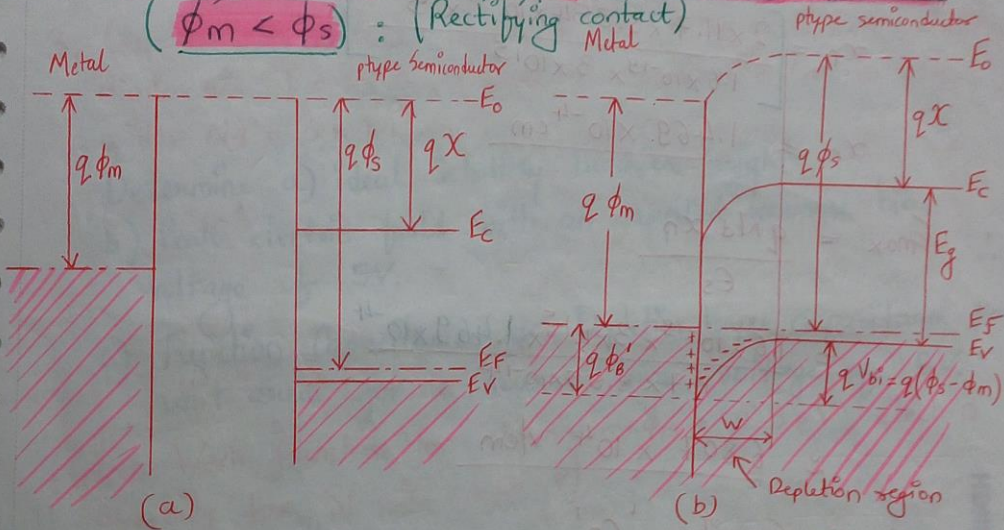 (φm < φs) : (Rectifying contact)
Metal
ptype Semiconductor
E₀
qφm
qφs
qX
Ec
EF
EV
(a)
Metal
ptype semiconductor
E₀
qφm
qφs
qX
Ec
Eg
EF
EV
qφB'
qVbi = q(φs - φm)
W
Depletion region
(b)